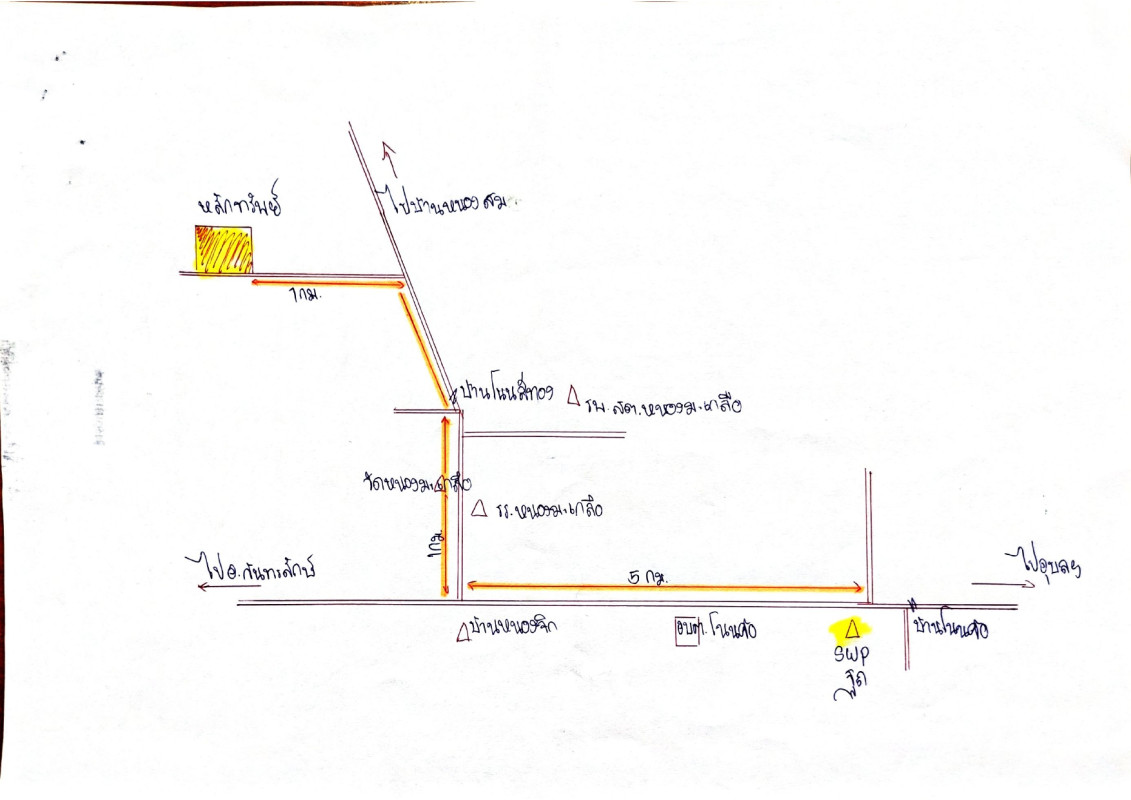 หลักทรัพย์
ไปบ้านหนองสม
1 กม.
บ้านโนนสีทอง
รพ.สต.หนองมะเกลือ
วัดหนองมะเกลือ
รร.หนองมะเกลือ
ไปอ.กันทรลักษ์
5 กม.
ไปอุบลฯ
บ้านหนองจิก
อบต.โนนค้อ
บ้านโนนค้อ
SWP